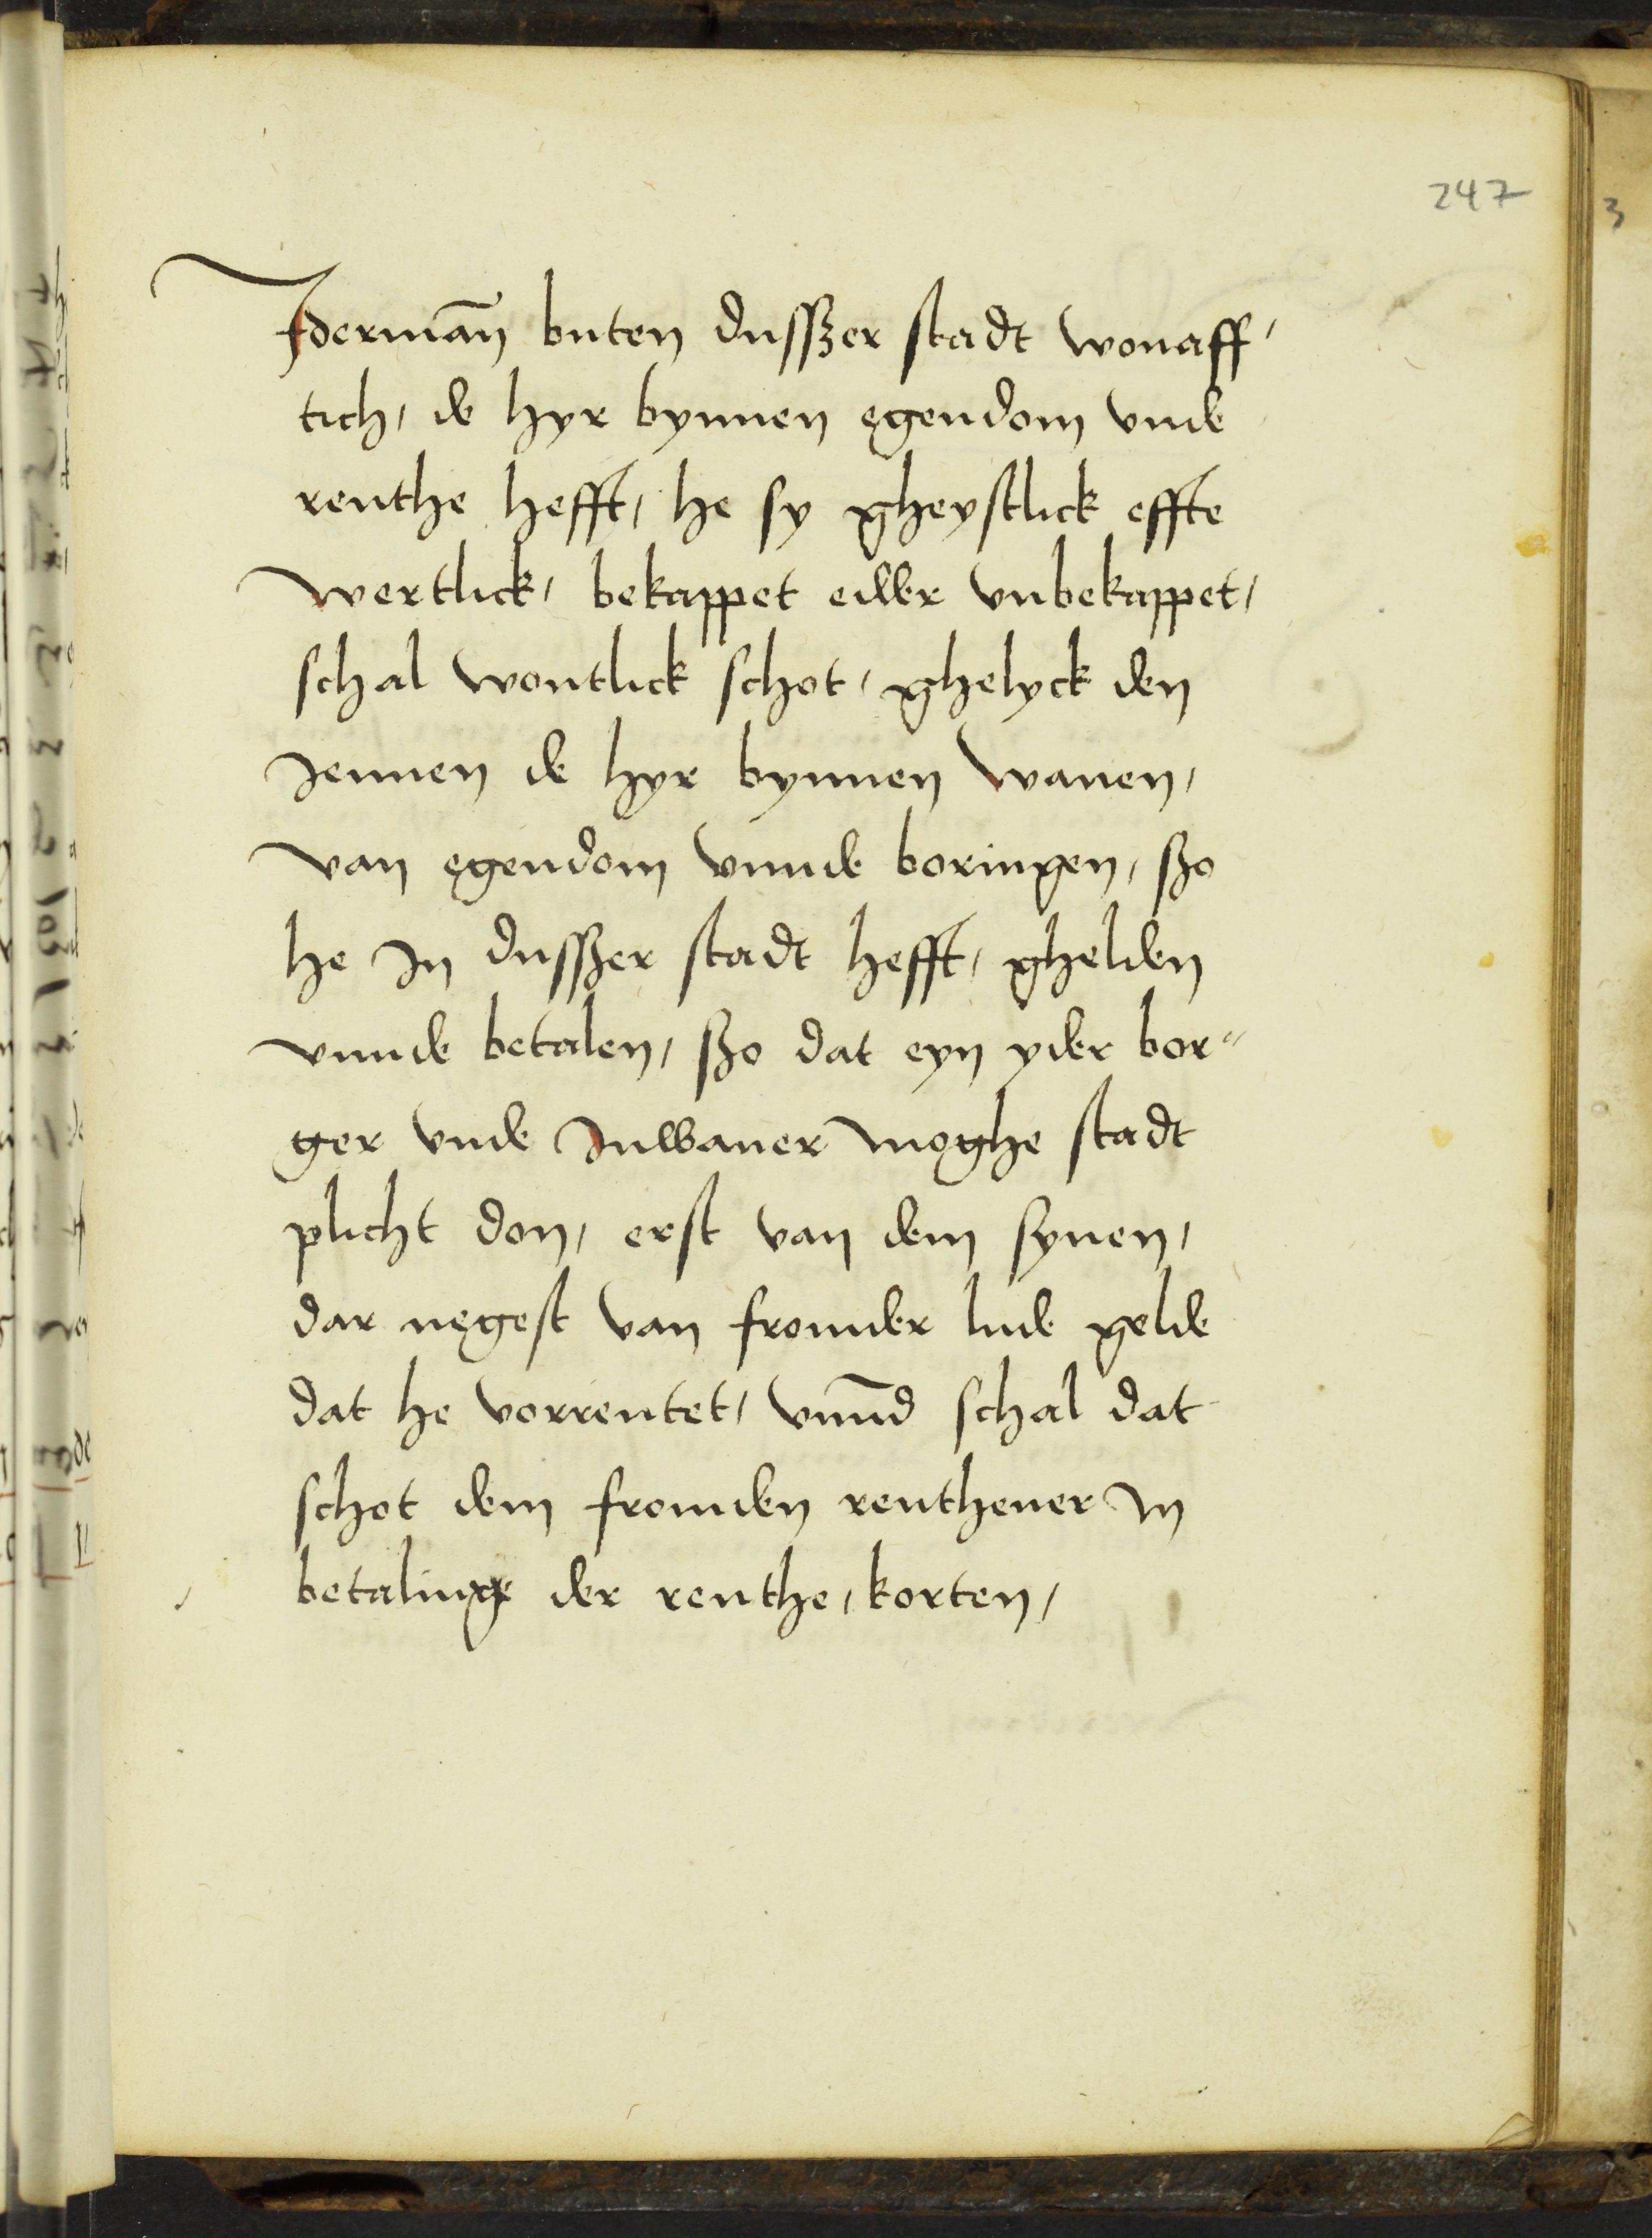 247
Jdermān buten dusszer stadt wonaff-
tich, de hyr bynnen ęgendom vnde
renthe hefft, he sy gheystlick effte
wertlick, bekappet edder vnbekappet,
schal wontlick schot, ghelyck den
Jennen de hyr bynnen wanen,
van ęgendom vnnde boringen, szo
he Jn dusszer stadt hefft, ghelden
vnnde betalen, szo dat eyn yder bor-
ger vnde Jnwaner męghe stadt
plicht don, erst van dem synen,
dar nęgest van fromder lude gelde
dat he vorrentet, vnn̄d schal dat
schot dem fromden renthener Jn
betalinge der renthe, korten,